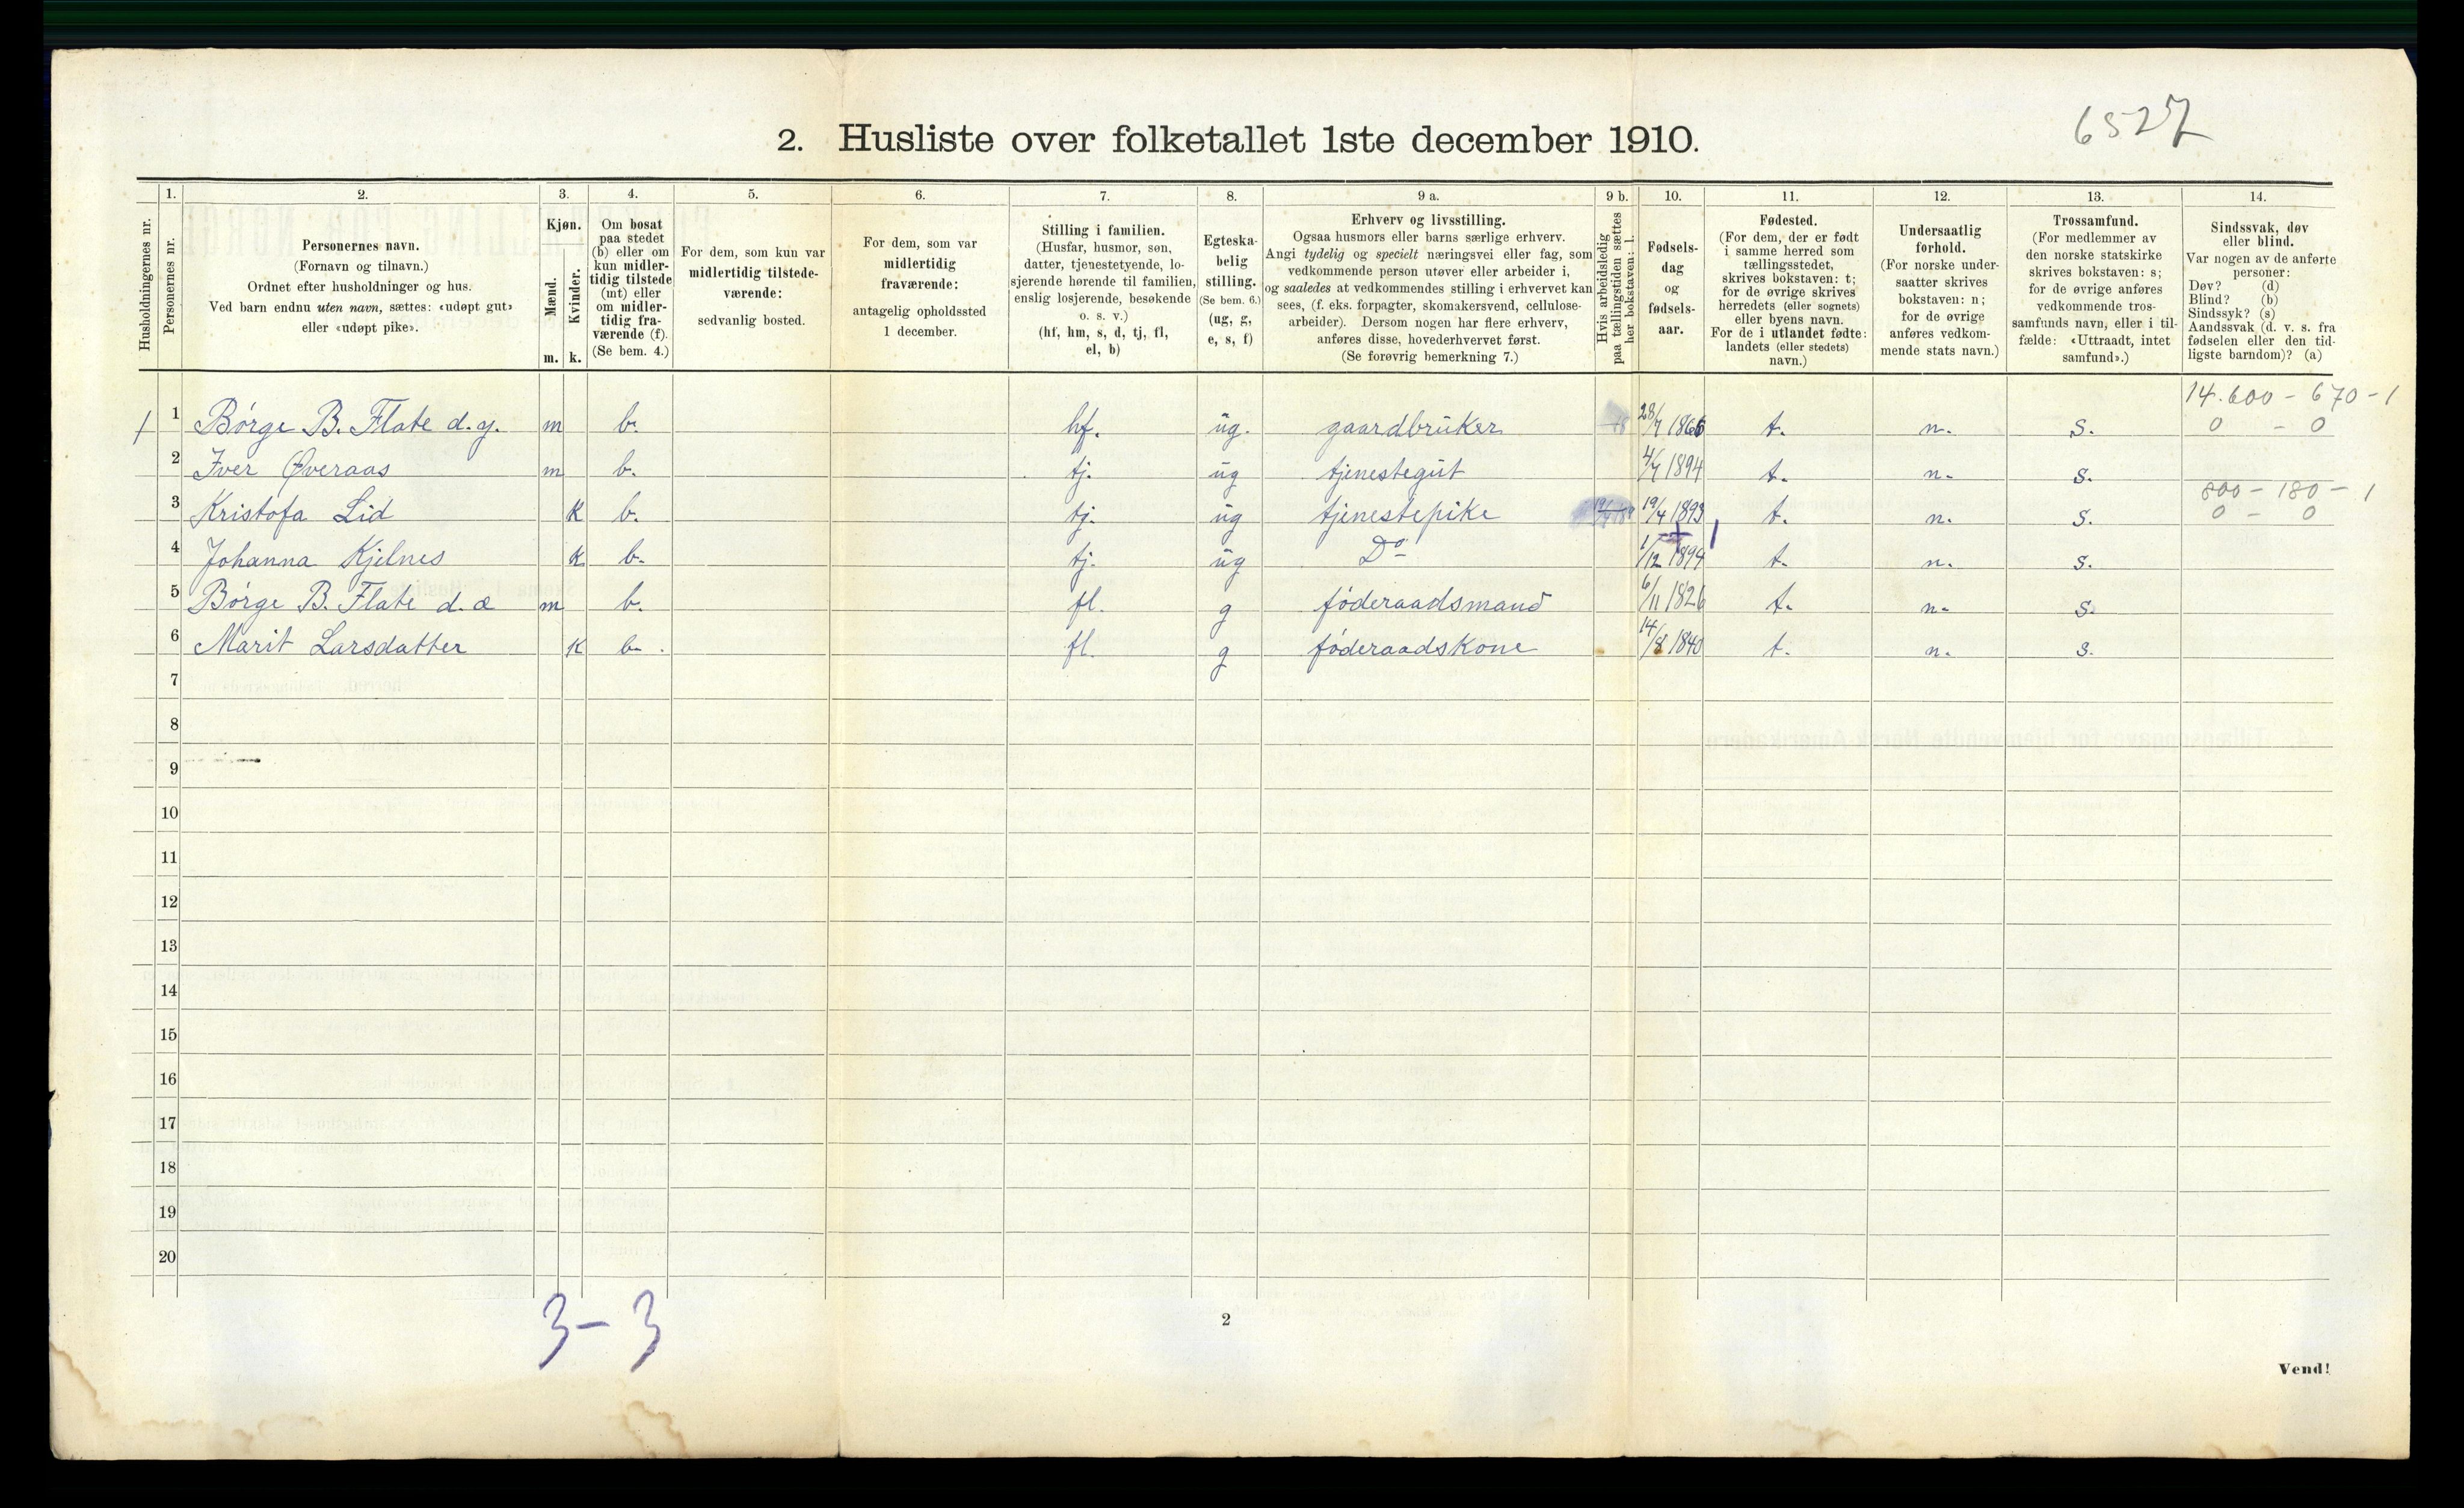 6527
2. Husliste over folketallet 1ste december 1910.
Husholdningernes nr.
1.
Personernes nr.
2.
Personernes navn.
(Fornavn og tilnavn.)
Ordnet efter husholdninger og hus.
Ved barn endnu uten navn, sættes: «udøpt gut»
eller «udøpt pike».
3.
Kjøn.
Mænd.
Kvinder.
m. k.
4.
Om bosat
paa stedet
(b) eller om
kun midler-
tidig tilstede
(mt) eller
om midler-
tidig fra-
værende (f).
(Se bem. 4.)
5.
For dem, som kun var
midlertidig tilstede-
værende:
sedvanlig bosted.
6.
For dem, som var
midlertidig
fraværende:
antagelig opholdssted
1 december.
7.
Stilling i familien.
(Husfar, husmor, søn,
datter, tjenestetyende, lo-
sjerende hørende til familien,
enslig losjerende, besøkende
o. s. v.)
(hf, hm, s, d, tj, fl,
el, b)
8.
Egteska-
belig
stilling.
(Se bem. 6.)
(ug, g,
e, s, f)
9 a.
Erhverv og livsstilling.
Ogsaa husmors eller barns særlige erhverv.
Angi tydelig og specielt næringsvei eller fag, som
vedkommende person utøver eller arbeider i,
og saaledes at vedkommendes stilling i erhvervet kan
sees, (f. eks. forpagter, skomakersvend, cellulose-
arbeider). Dersom nogen har flere erhverv,
anføres disse, hovederhvervet først.
(Se forøvrig bemerkning 7.)
9 b.
Hvis arbeidsledig
paa tællingstiden sættes
her bokstaven: l.
10.
Fødsels-
dag
og
fødsels-
aar.
11.
Fødested.
(For dem, der er født
i samme herred som
tællingsstedet,
skrives bokstaven: t;
for de øvrige skrives
herredets (eller sognets)
eller byens navn.
For de i utlandet fødte:
landets (eller stedets)
navn.)
12.
Undersaatlig
forhold.
(For norske under-
saatter skrives
bokstaven: n;
for de øvrige
anføres vedkom-
mende stats navn.)
13.
Trossamfund.
(For medlemmer av
den norske statskirke
skrives bokstaven: s;
for de øvrige anføres
vedkommende tros-
samfunds navn, eller i til-
fælde: «Uttraadt, intet
samfund».)
14.
Sindssvak, døv
eller blind.
Var nogen av de anførte
personer:
Døv? (d)
Blind? (b)
Sindssyk? (s)
Aandssvak (d. v. s. fra
fødselen eller den tid-
ligste barndom)? (a)
14.600 - 670 - 1
1 Børge B. Flate d. y. m b. hf. ug. gaardbruker 28/7 1866 t. n. s. 0 - 0
2 Iver Øveraas m b. tj. ug tjenestegut 4/7 1894 t. n. s.
800 - 180 - 1
3 Kristofa Lid k b. tj. ug tjenestepike 19/4 1893 t. n. s. 0 - 0
4 Johanna Kjelnes k b. tj. ug Do 1/12 1894 t. n. s.
5 Børge B. Flate d. æ m b. fl. g føderaadsmand 6/11 1826 t. n. s.
6 Marit Larsdatter k b. fl. g føderaadskone 14/8 1840 t. n. s.
7
8
9
10
11
12
13
14
15
16
17
18
19
20
3 - 3
2
Vend!